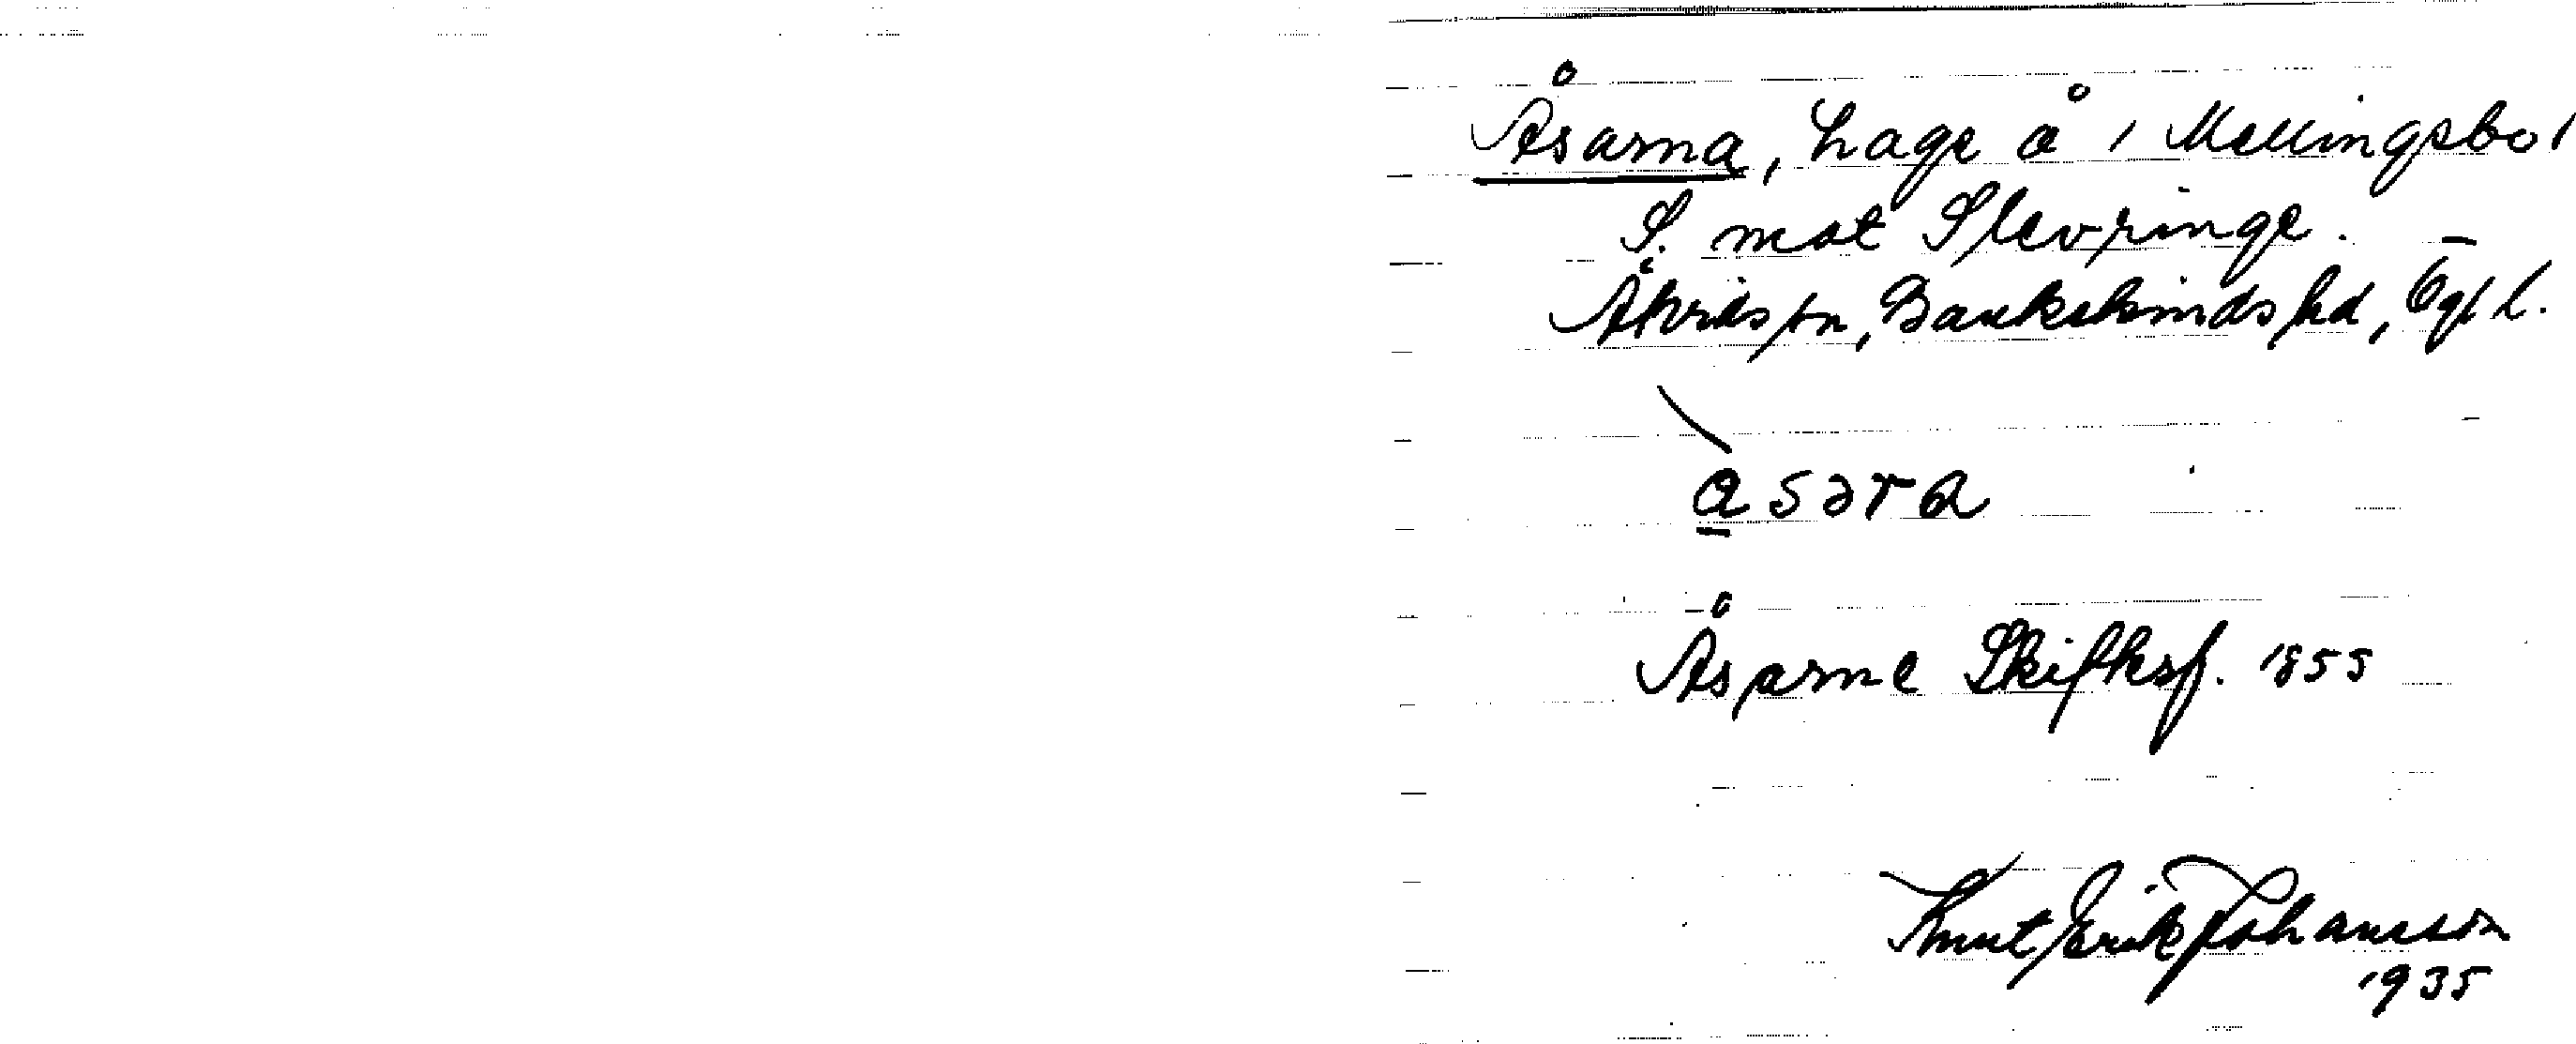 Åsarna, hage å i Mellingsbo i
S. mot Slevringe.
Åtvids sn, Bankekinds hd, Ögtl.
asəra
Åsarne Skifksf. 1855
Knut Erik Johansson
1935